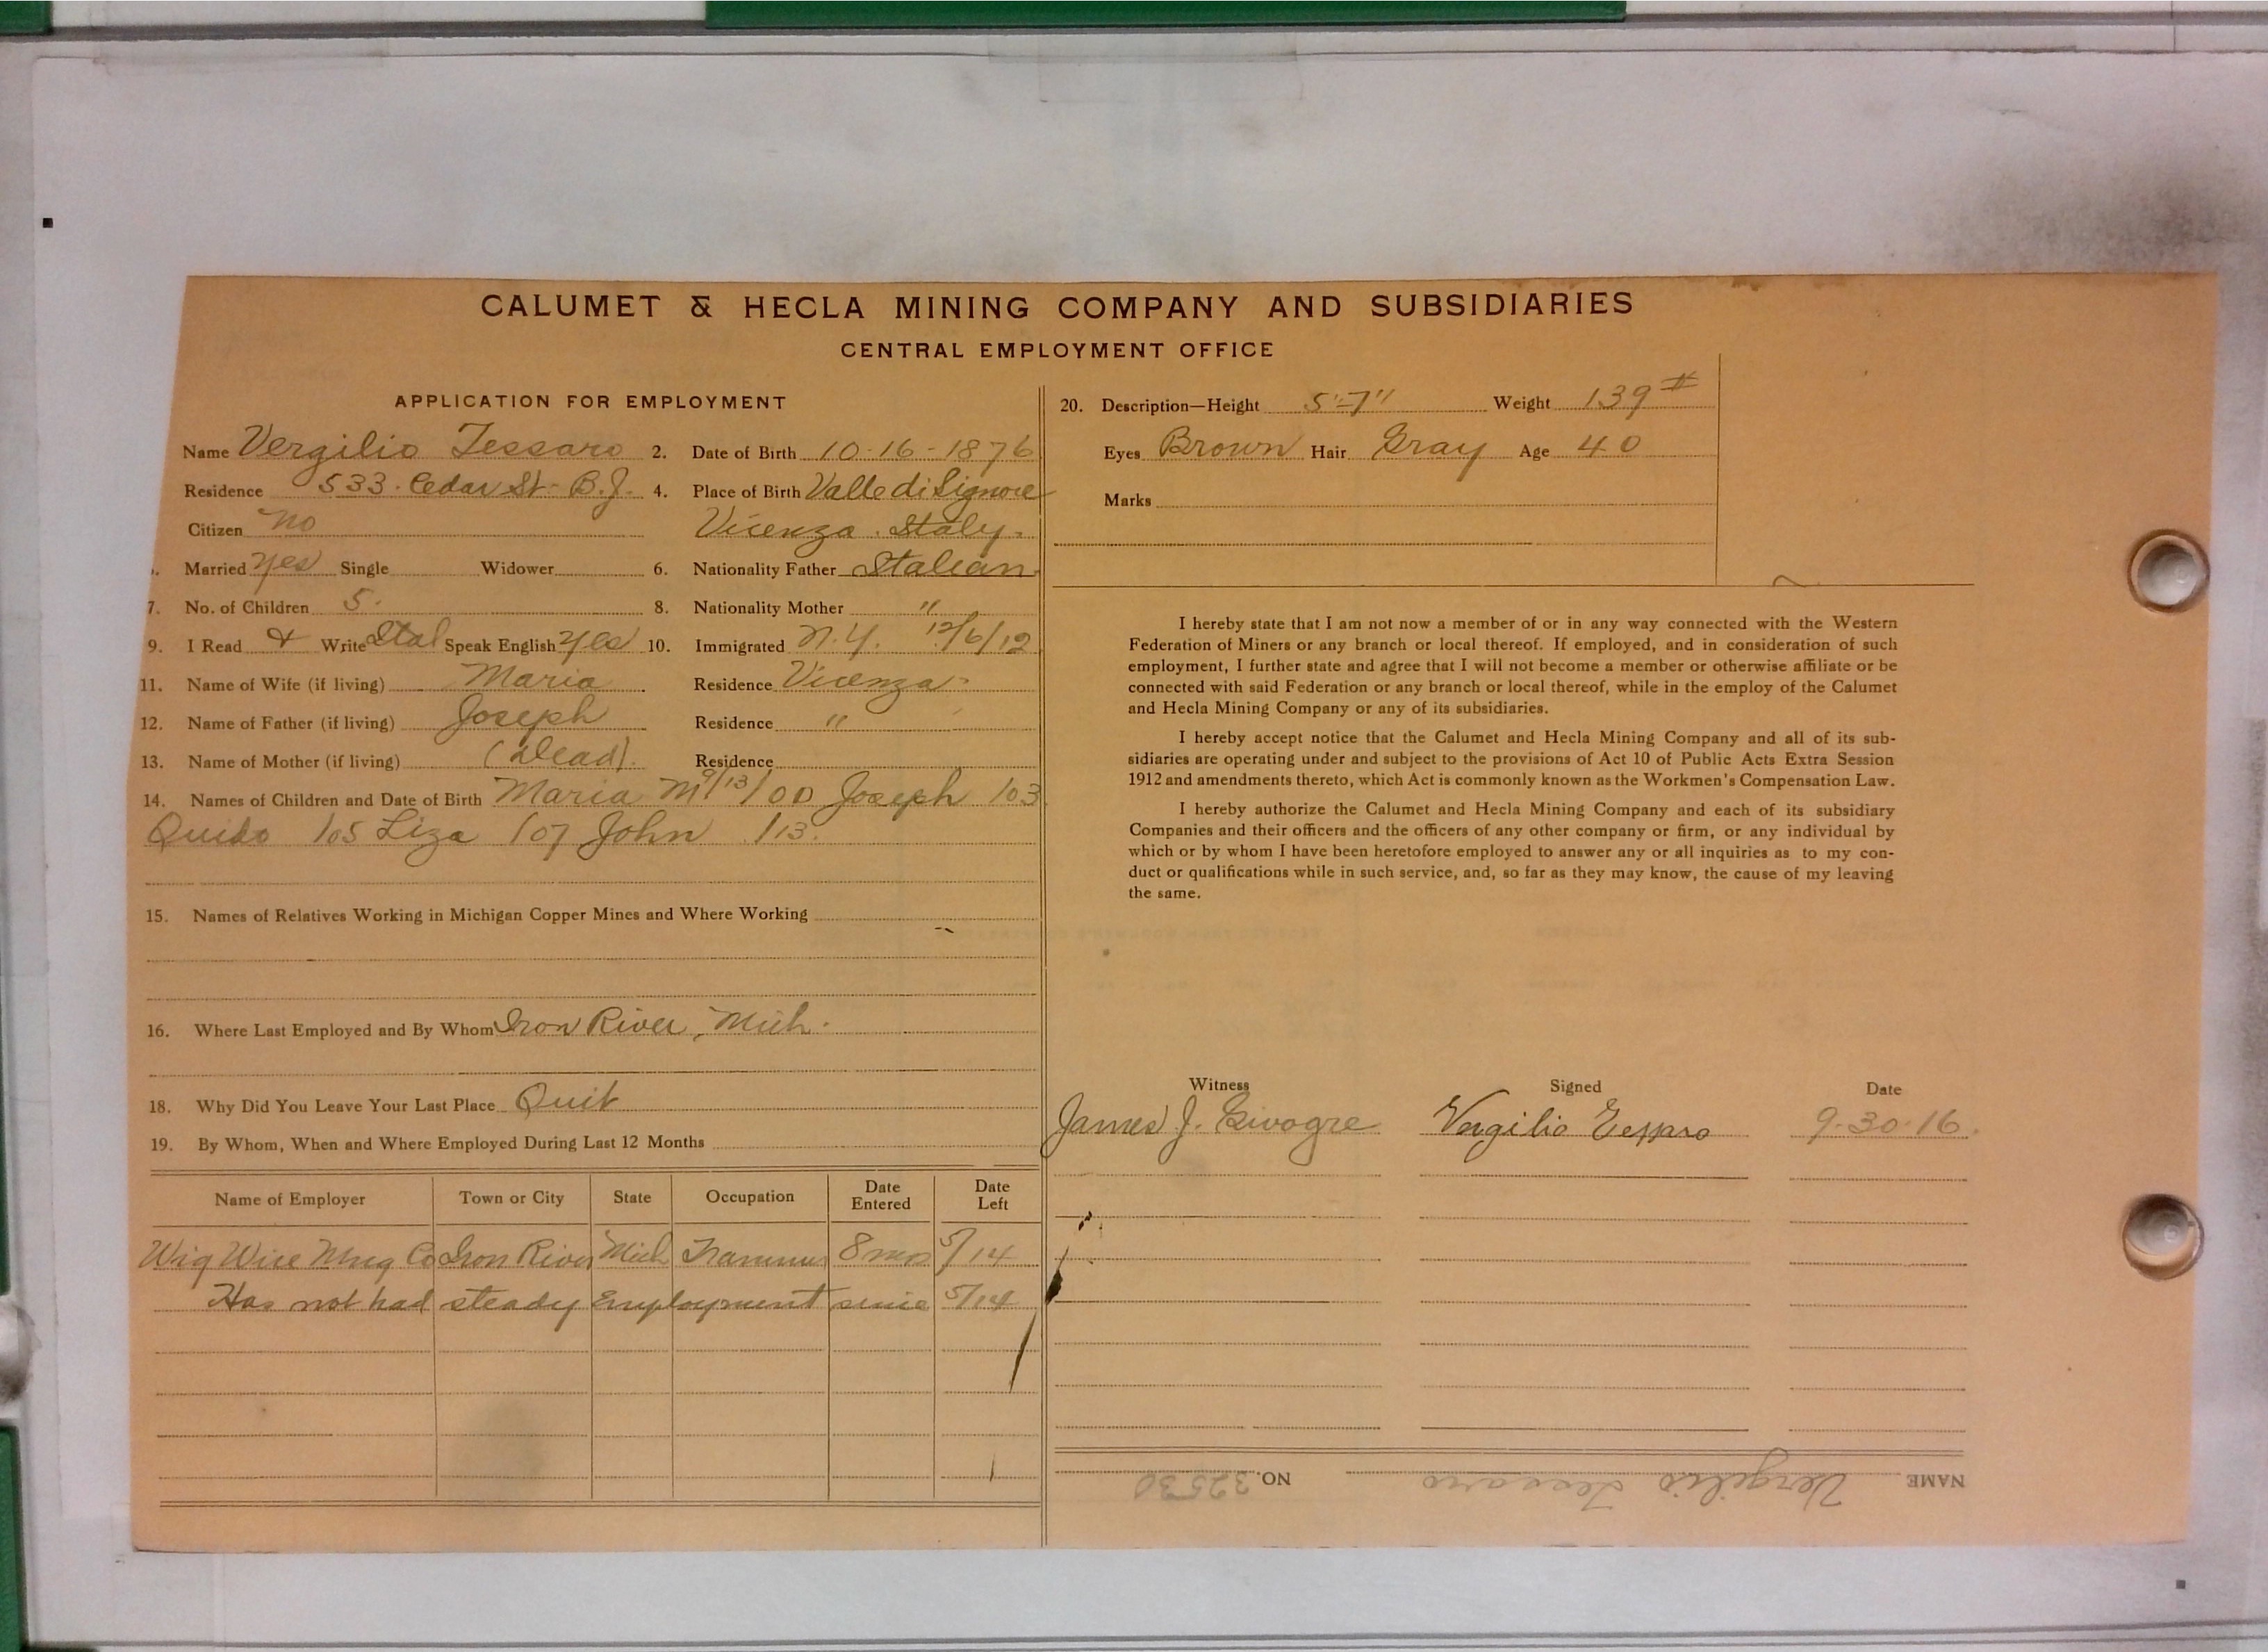 CALUMET & HECLA MINING COMPANY AND SUBSIDIARIES
CENTRAL EMPLOYMENT OFFICE
APPLICATION FOR EMPLOYMENT
Name Vergilio Tessaro 2. Date of Birth 10-16-1876
Residence 533 Cedar St. B.J. 4. Place of Birth Valle di Signore
Citizen no Vicenza. Italy.
Married yes Single Widower 6. Nationality Father Italian
7. No. of Children 5. 8. Nationality Mother "
9. I Read & Write Ital Speak English yes 10. Immigrated N.Y. 12/6/12
11. Name of Wife (if living) Maria Residence Vicenza
12. Name of Father (if living) Joseph Residence "
13. Name of Mother (if living) (Dead). Residence
14. Names of Children and Date of Birth Maria M 9/13/00 Joseph /03
Quido /05 Liza /07 John /13.
15. Names of Relatives Working in Michigan Copper Mines and Where Working
--
16. Where Last Employed and By Whom Iron River, Mich.
18. Why Did You Leave Your Last Place Quit
19. By Whom, When and Where Employed During Last 12 Months
Name of Employer Town or City State Occupation Date Entered Date Left
Wig Wice Mng Co Iron River Mich Trammer 8 mos 5/14
Has not had steady Employment since 5/14
20. Description—Height 5'-7" Weight 139 #
Eyes Brown Hair Gray Age 40
Marks
I hereby state that I am not now a member of or in any way connected with the Western
Federation of Miners or any branch or local thereof. If employed, and in consideration of such
employment, I further state and agree that I will not become a member or otherwise affiliate or be
connected with said Federation or any branch or local thereof, while in the employ of the Calumet
and Hecla Mining Company or any of its subsidiaries.
I hereby accept notice that the Calumet and Hecla Mining Company and all of its sub-
sidiaries are operating under and subject to the provisions of Act 10 of Public Acts Extra Session
1912 and amendments thereto, which Act is commonly known as the Workmen's Compensation Law.
I hereby authorize the Calumet and Hecla Mining Company and each of its subsidiary
Companies and their officers and the officers of any other company or firm, or any individual by
which or by whom I have been heretofore employed to answer any or all inquiries as to my con-
duct or qualifications while in such service, and, so far as they may know, the cause of my leaving
the same.
Witness Signed Date
James J. Vergilio Tessaro 9-30-16.
NAME Vergilio Tessaro NO. 32530